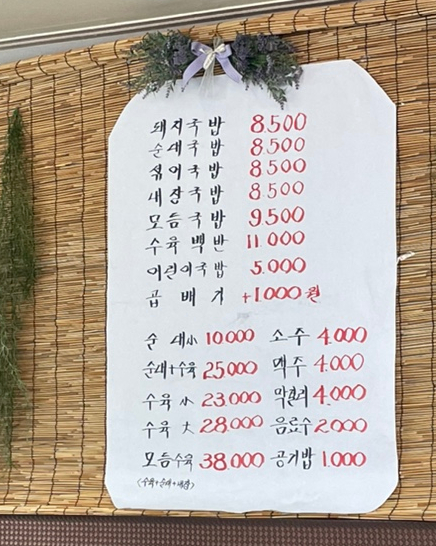 돼지국밥 8.500
순대국밥 8.500
섞어국밥 8.500
내장국밥 8.500
모듬국밥 9.500
수육백반 11.000
어린이국밥 5.000
곱배기 +1000원
순대小 10.000 소주 4.000
순대+수육 25.000 맥주 4.000
수육小 23.000 막걸리 4.000
수육大 28.000 음료수 2.000
모듬수육 38.000 공기밥 1.000
(수육+순대+내장)